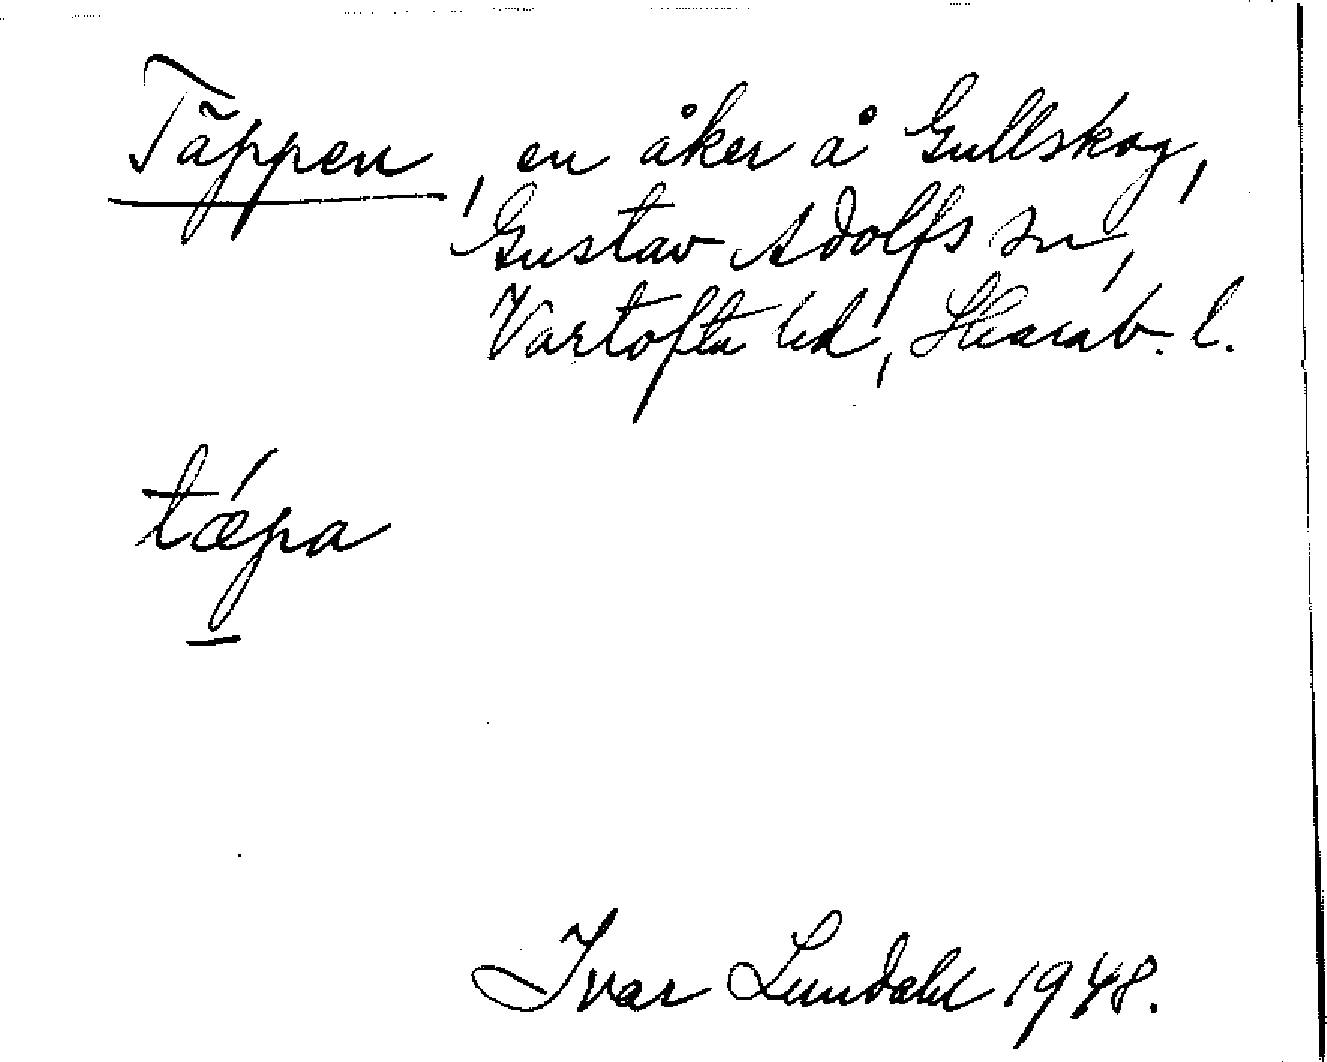 Täppen, en åker å Gullskog,
Gustav Adolfs sn,
Vartofta hd, Skarab. l.
tǽpa
Ivar Lundahl 1948.